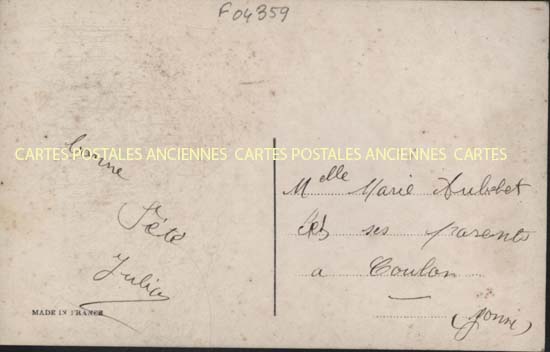 F04359
bonne
Fête
Julia
CARTES POSTALES ANCIENNES CARTES POSTALES ANCIENNES CARTES
MADE IN FRANCE
Melle Marie
ses parents
a Coulon